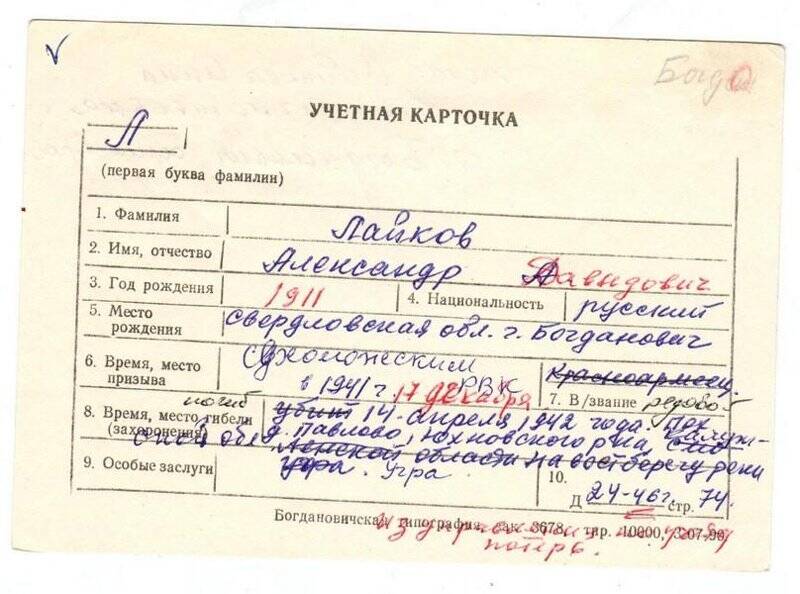 Богд
УЧЕТНАЯ КАРТОЧКА
Л
(первая буква фамилии)
1. Фамилия Лайков
2. Имя, отчество Александр Давыдович
3. Год рождения 1911 4. Национальность русский
5. Место рождения Свердловская обл. г. Богданович
6. Время, место призыва Сухоложским РВК
в 1941 г 17 декабря
Красноармеец
7. В/звание рядовой
погиб
8. Время, место гибели (захоронения) убит 14 апреля 1942 года.
д. Павлово, Юхновского р-на,
ской обл. ленской области на вост берегу реки
9. Особые заслуги Угра. Угра
10.
Д 24-46г стр. 74.
Богдановичская типография, зак. 3678, тир. 10000, 3207-90
потерь.